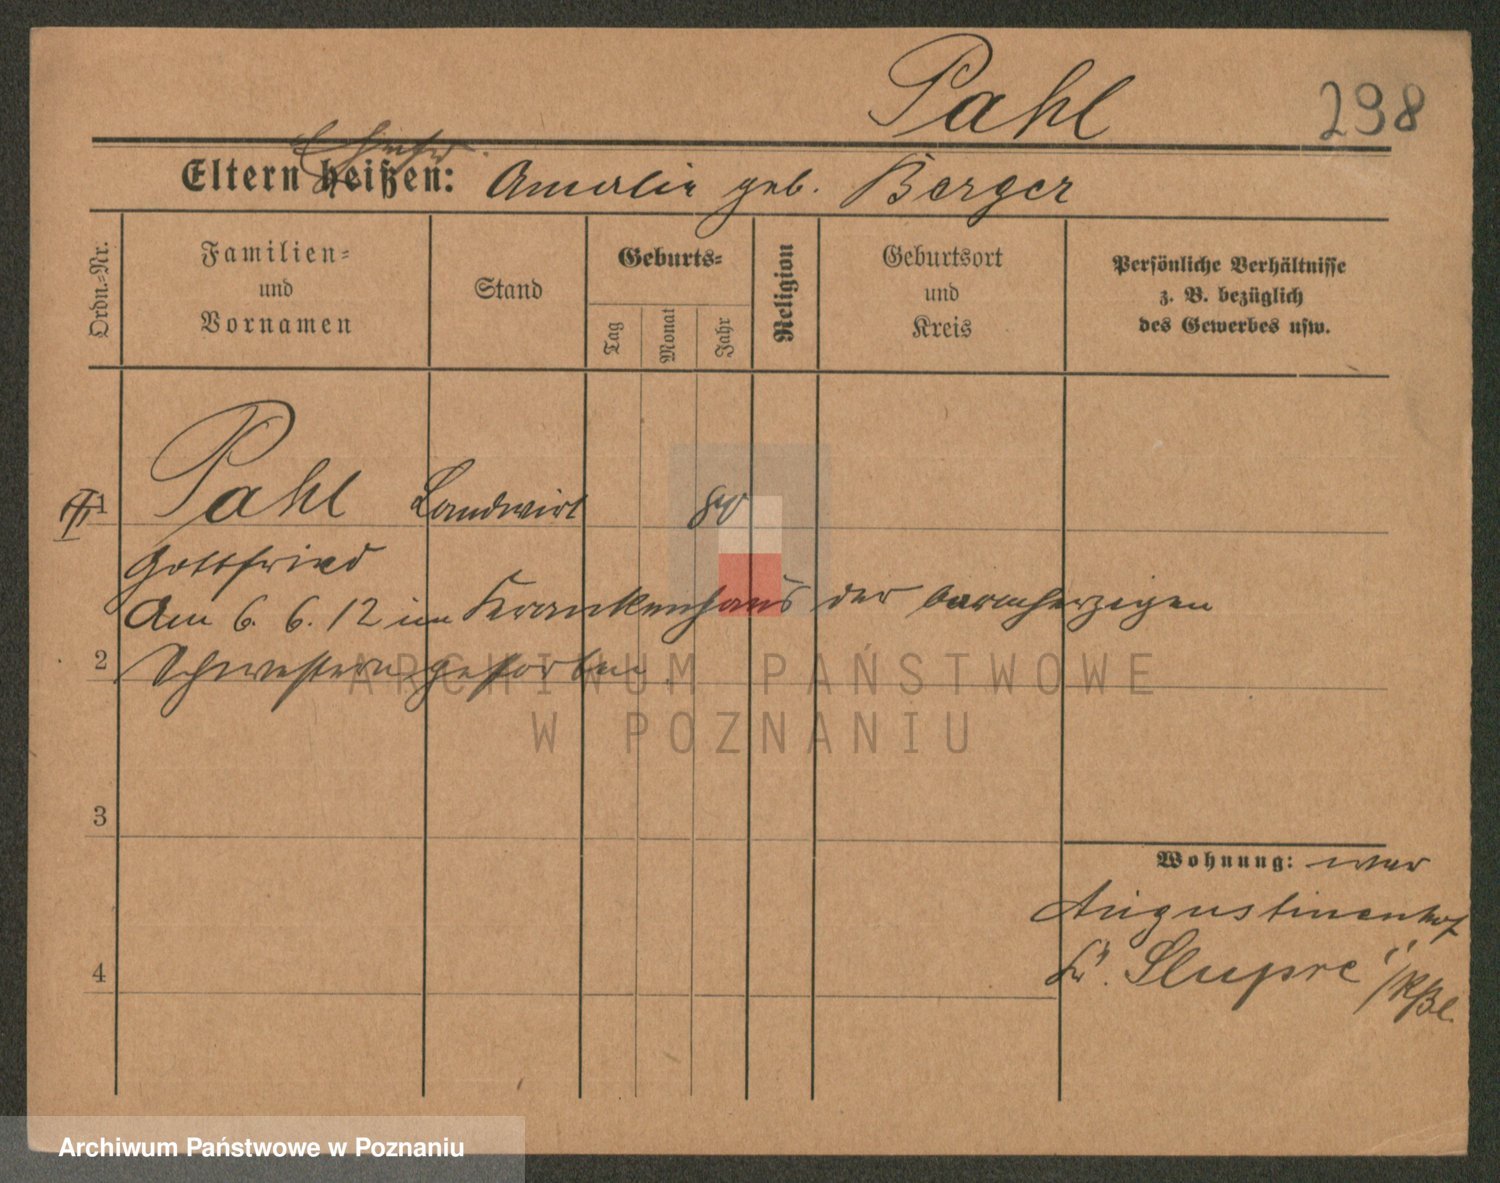 Pahl
298
Eltern heißen: Amalie geb. Berger
Ordn.-Nr.
Familien-
und
Vornamen
Stand
Geburts-
Tag
Monat
Jahr
Religion
Geburtsort
und
Kreis
Persönliche Verhältnisse
z. B. bezüglich
des Gewerbes usw.
1 Pahl Landwirt 80
Gottfried
Am 6. 6. 12 im Krankenhaus der barmherzigen
2 Schwestern gestorben.
ARCHIWUM PAŃSTWOWE
W POZNANIU
3
Wohnung: war
Augustinenhof
4
Kr.
Archiwum Państwowe w Poznaniu